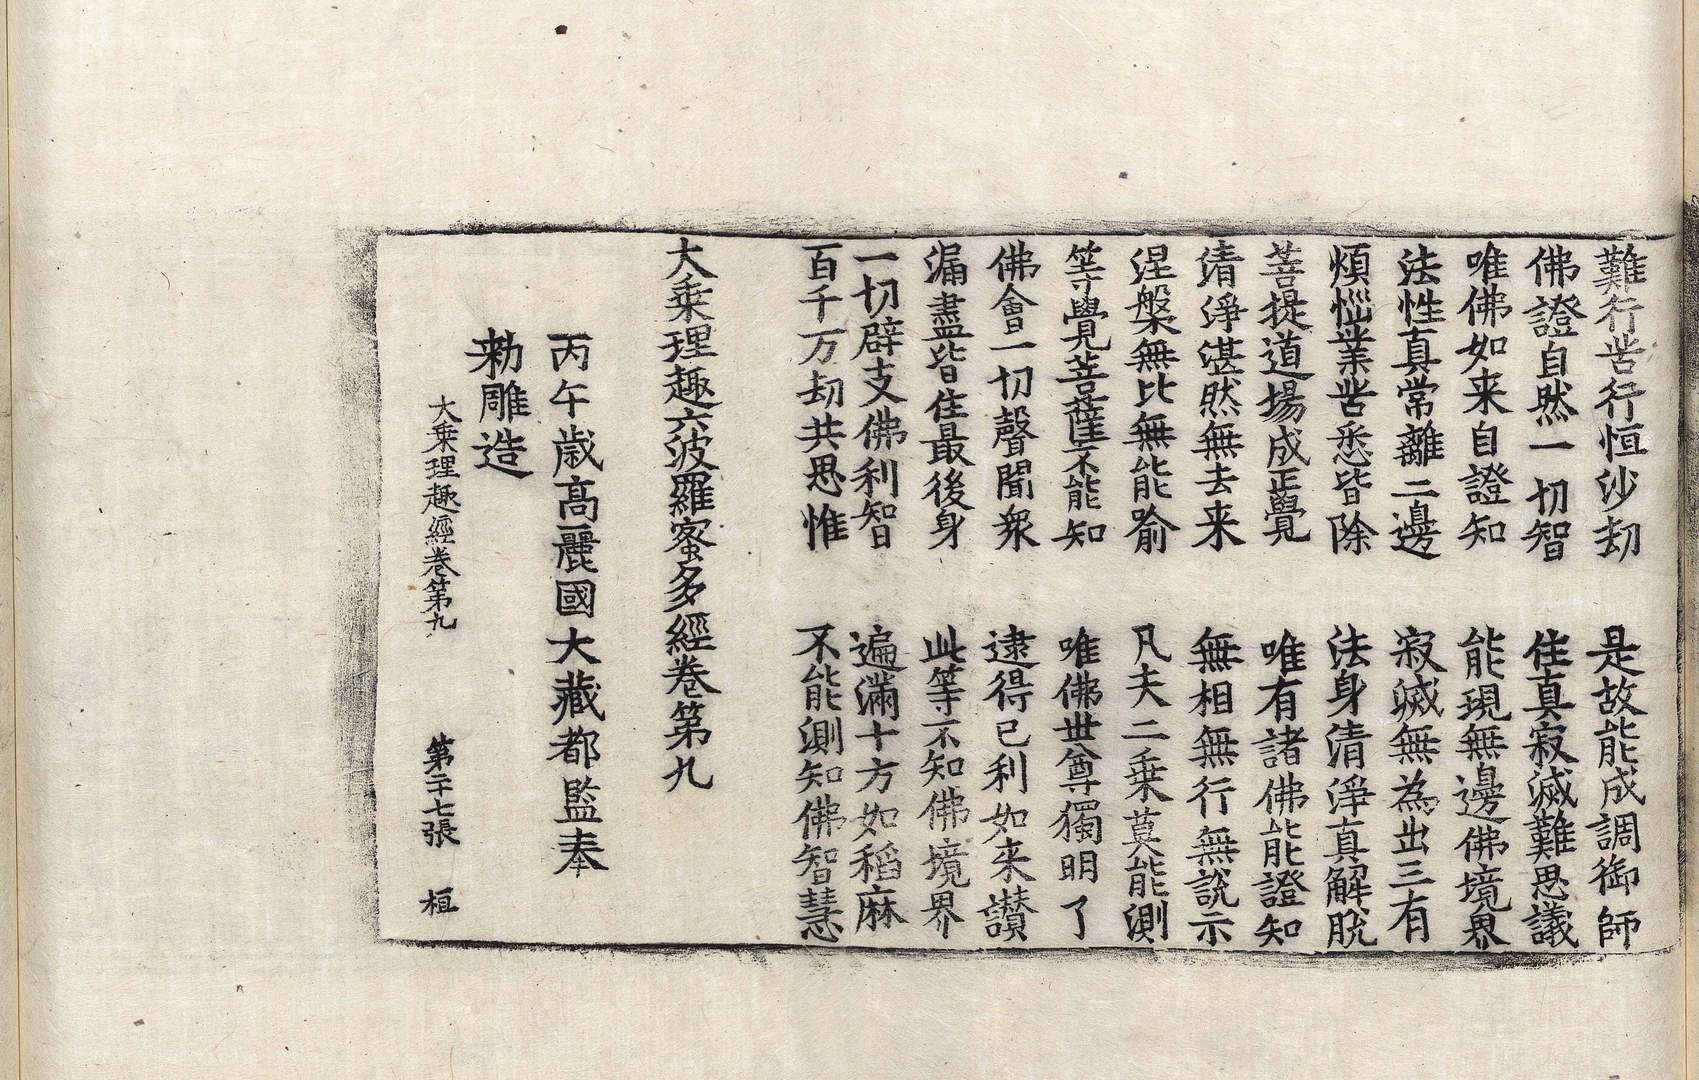 難行苦行恒沙劫　是故能成調御師
佛證自然一切智　住真寂滅難思議
唯佛如来自證知　能現無邊佛境界
法性真常離二邊　寂滅無為出三有
煩惱業苦悉皆除　法身清淨真解脫
菩提道場成正覺　唯有諸佛能證知
清淨湛然無去来　無相無行無說示
涅槃無比無能喻　凡夫二乗莫能測
等覺菩薩不能知　唯佛世尊獨明了
佛會一切聲聞衆　逮得已利如来讃
漏盡皆住最後身　此等不知佛境界
一切辟支佛利智　遍滿十方如稻麻
百千万劫共思惟　不能測知佛智慧
大乗理趣六波羅蜜多經卷第九
丙午歲高麗國大藏都監奉
勑雕造
大乗理趣經卷第九　第二十七張　桓